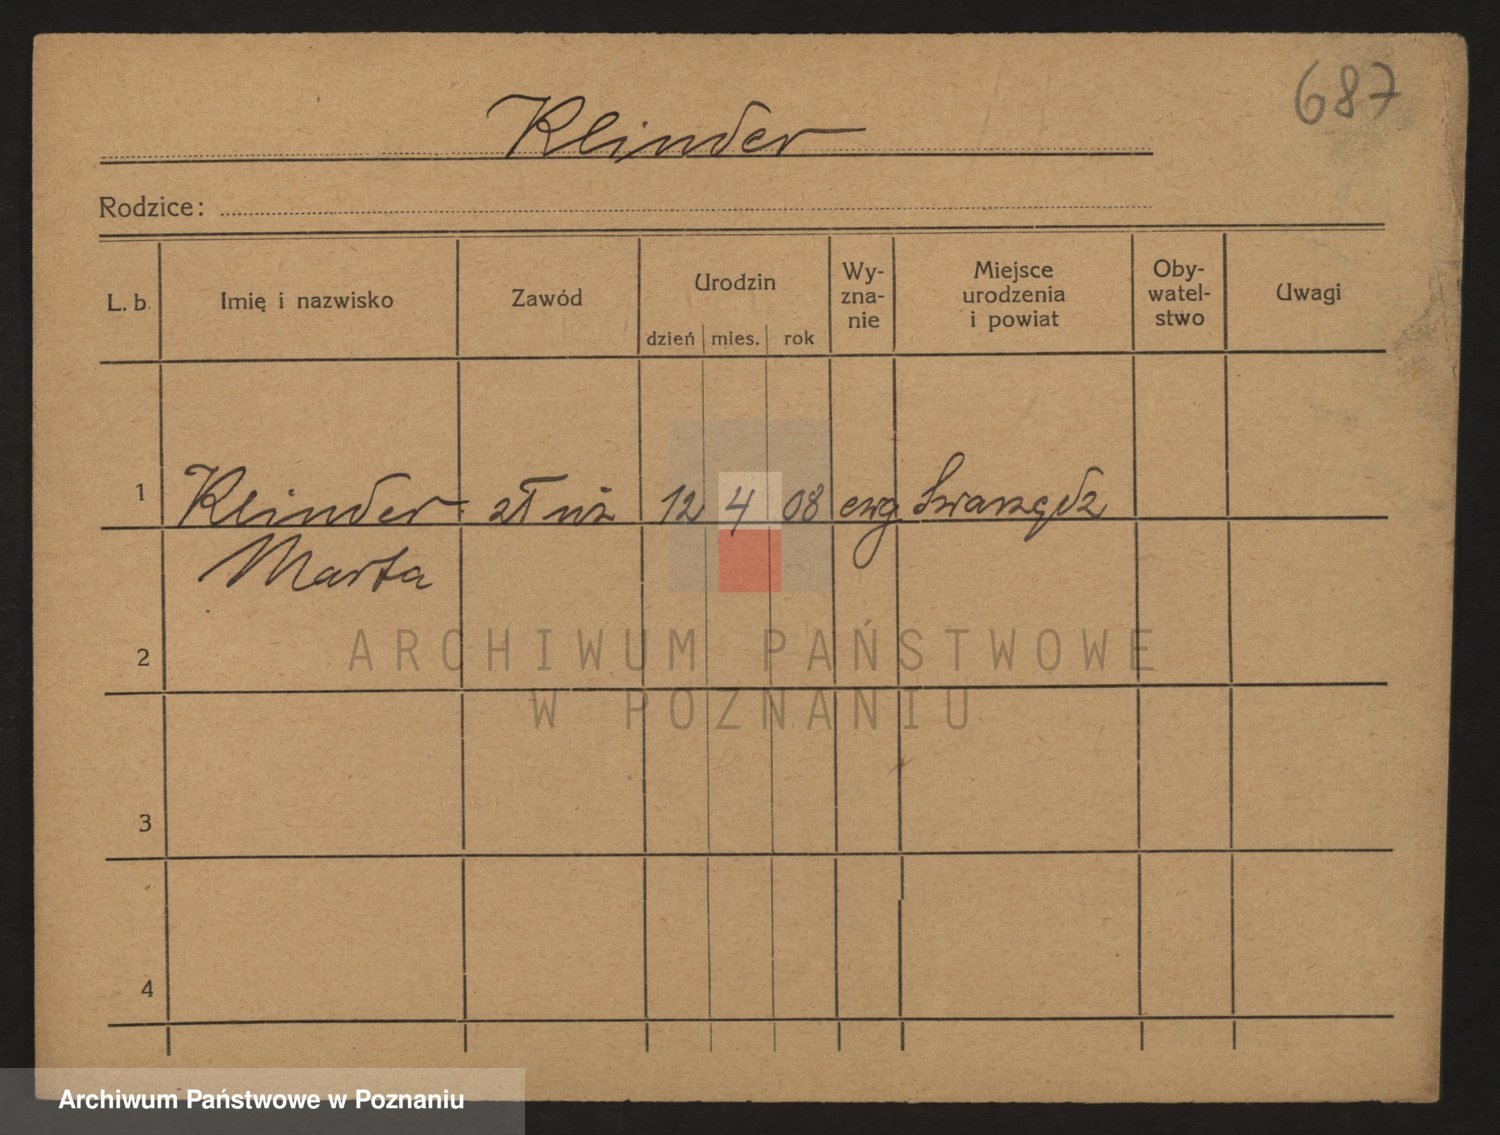 687
Klinder
Rodzice:
L. b. Imię i nazwisko Zawód Urodzin dzień mies. rok Wy-zna-nie Miejsce urodzenia i powiat Oby-watel-stwo Uwagi
1 Klinder 12 4 08 ewg Swarzędz
Marta
2
ARCHIWUM PAŃSTWOWE
W POZNANIU
3
4
Archiwum Państwowe w Poznaniu